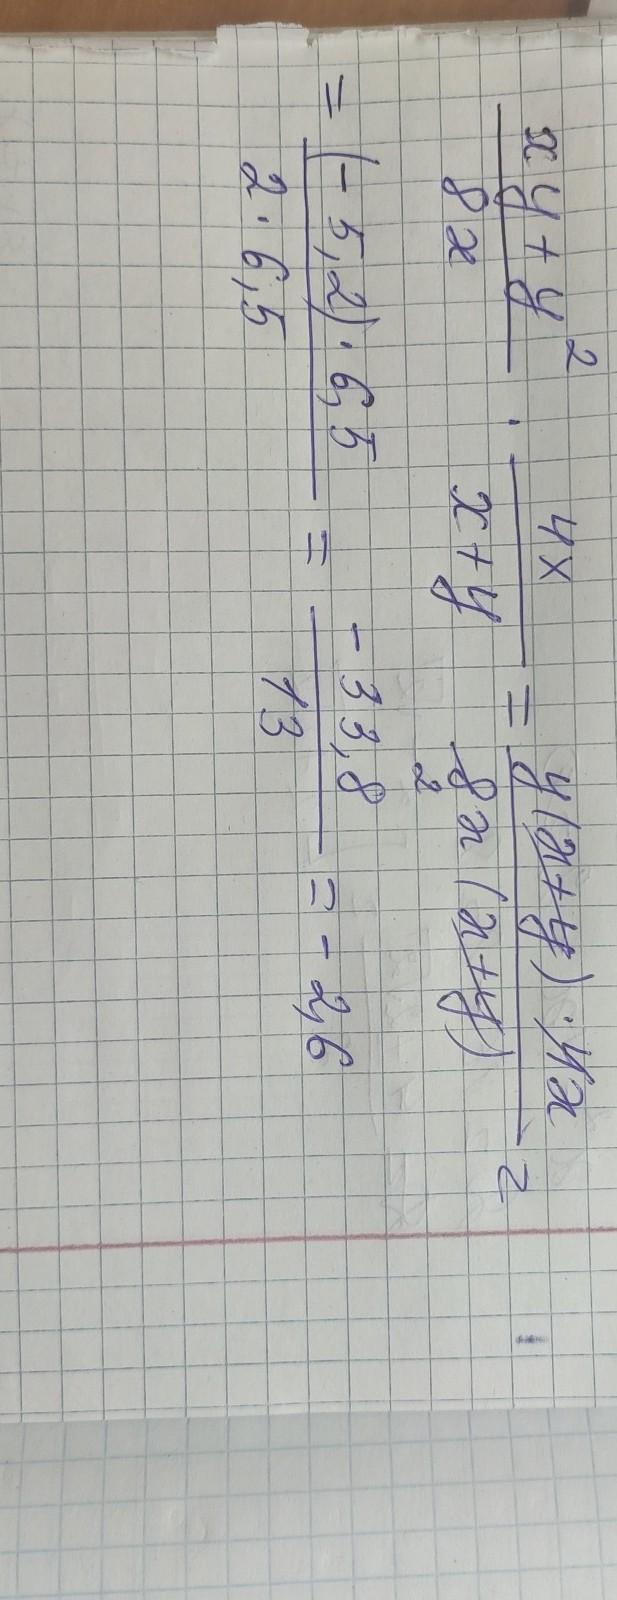 xy + y² / 8x · 4x / x + y = y(x+y) · 4x / 8x(x+y) 2 =
= (-5,2) · 6,5 / 2 · 6,5 = -33,8 / 13 = -2,6